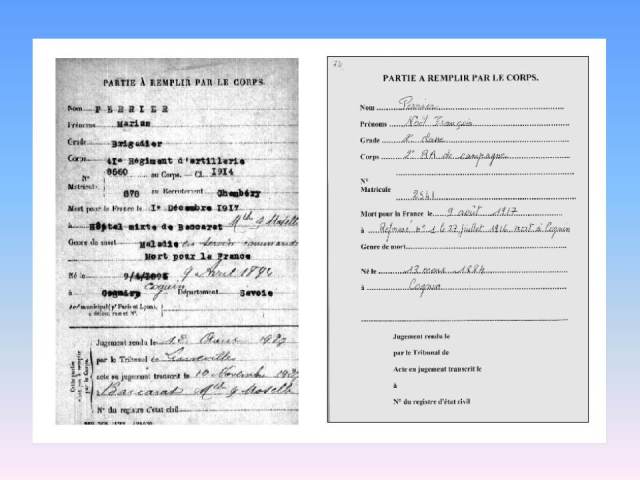 PARTIE À REMPLIR PAR LE CORPS.
Nom PERRIER
Prénoms Marius
Grade Brigadier
Corps 41e Régiment d'artillerie
N° 8560 au Corps. — Cl. 1914
Matricule 878 au Recrutement Chambéry
Mort pour la France le 1e Décembre 1917
à Hôpital mixte de Baccarat Mthe & Moselle
Genre de mort Maladie en service commandé
Mort pour la France
Né le 9 Avril 1892
à Cognin Département Savoie
Arrt municipal (pr Paris et Lyon),
à défaut rue et N°.
Cette partie
n'est pas à remplir
par le Corps.
Jugement rendu le
par le Tribunal de
acte ou jugement transcrit le 10 Novembre
Baccarat Mthe & Moselle
N° du registre d'état civil
PARTIE A REMPLIR PAR LE CORPS.
Nom Perrier
Prénoms Noël François
Grade 2e classe
Corps 2e RA de campagne
N°
Matricule
2541
Mort pour la France le 9 août 1917
à Réformé n° 1 le 27 juillet 1916 mort à Cognin
Genre de mort
Né le 13 mars 1884
à Cognin
Jugement rendu le
par le Tribunal de
Acte ou jugement transcrit le
à
N° du registre d'état civil